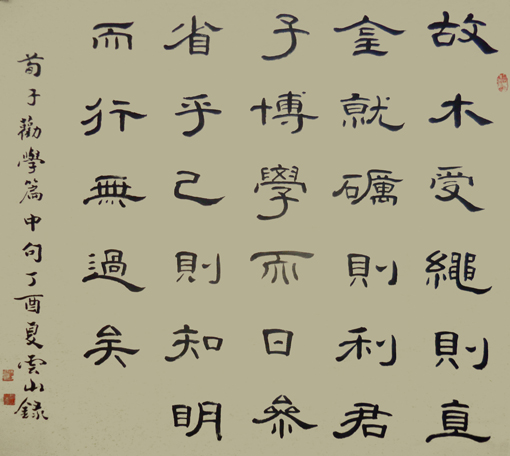 故木受繩則直
金就礪則利君
子博學而日參
省乎己則知明
而行無過矣
荀子勸學篇中句丁酉夏雲山錄